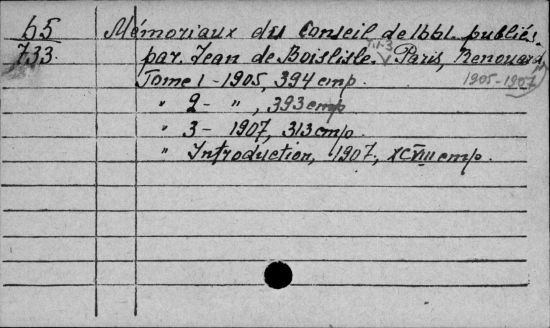 65 Mémoriaux du Conseil de 1661. publiés.
733. par Jean de Boislisle. T.1-3 Paris, Renouard,
Tome 1 - 1905, 394 стр. 1905-1907
" 2 - " , 393 стр
" 3 - 1907, 313 стр.
" Introduction, 1907, XCVIII стр.